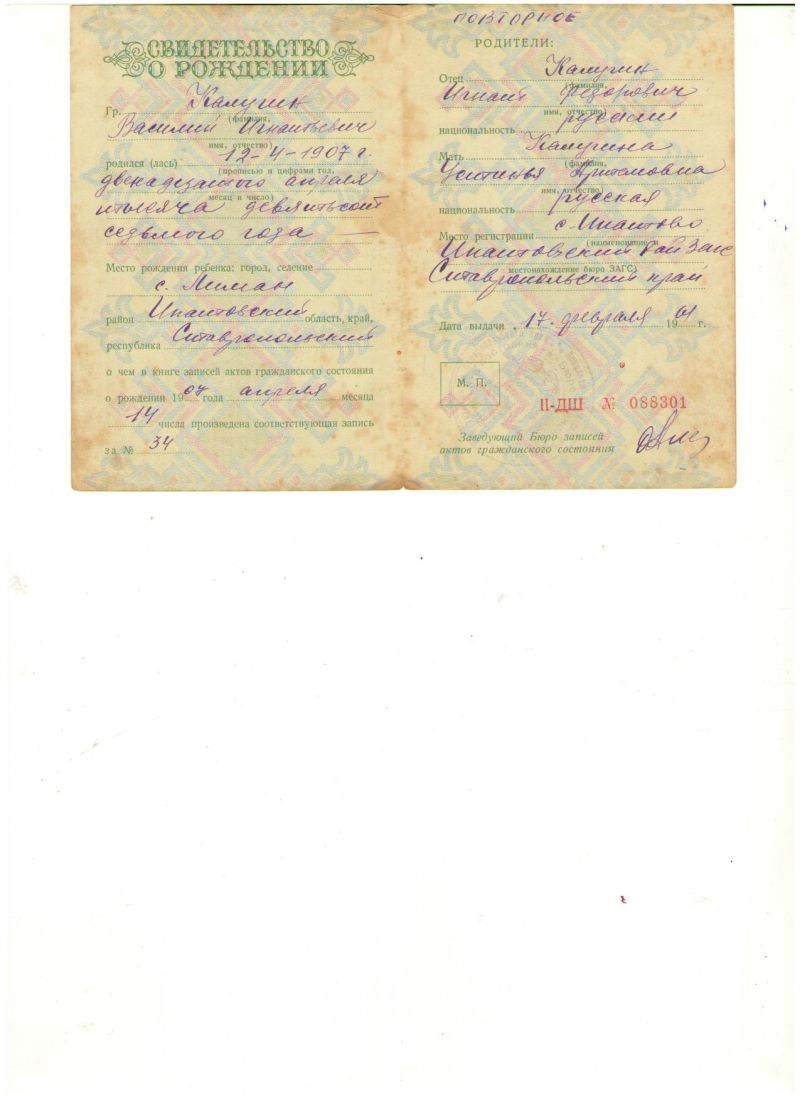 СВИДЕТЕЛЬСТВО
О РОЖДЕНИИ
Гр. Калугин
(фамилия,
Василий Игнатьевич
имя, отчество)
родился (лась) 12-4-1907 г.
(прописью и цифрами год,
двенадцатого апреля
месяц и число)
тысяча девятьсот
седьмого года
Место рождения ребенка: город, селение
с. Лиман
район Ипатовский область, край,
республика Ставропольский
о чем в книге записей актов гражданского состояния
о рождении 1907 года апреля месяца
14 числа произведена соответствующая запись
за № 34
ПОВТОРНОЕ
РОДИТЕЛИ:
Отец Калугин
(фамилия,
Игнат Федорович
имя, отчество)
национальность русский
Мать Калугина
(фамилия,
Устинья Артамовна
имя, отчество)
национальность русская
Место регистрации с. Ипатово
(наименование и
Ипатовский рай Загс
местонахождение бюро ЗАГС)
Ставропольский край
Дата выдачи 17. февраля 19 г.
М. П.
II-ДШ № 088301
Заведующий Бюро записей
актов гражданского состояния